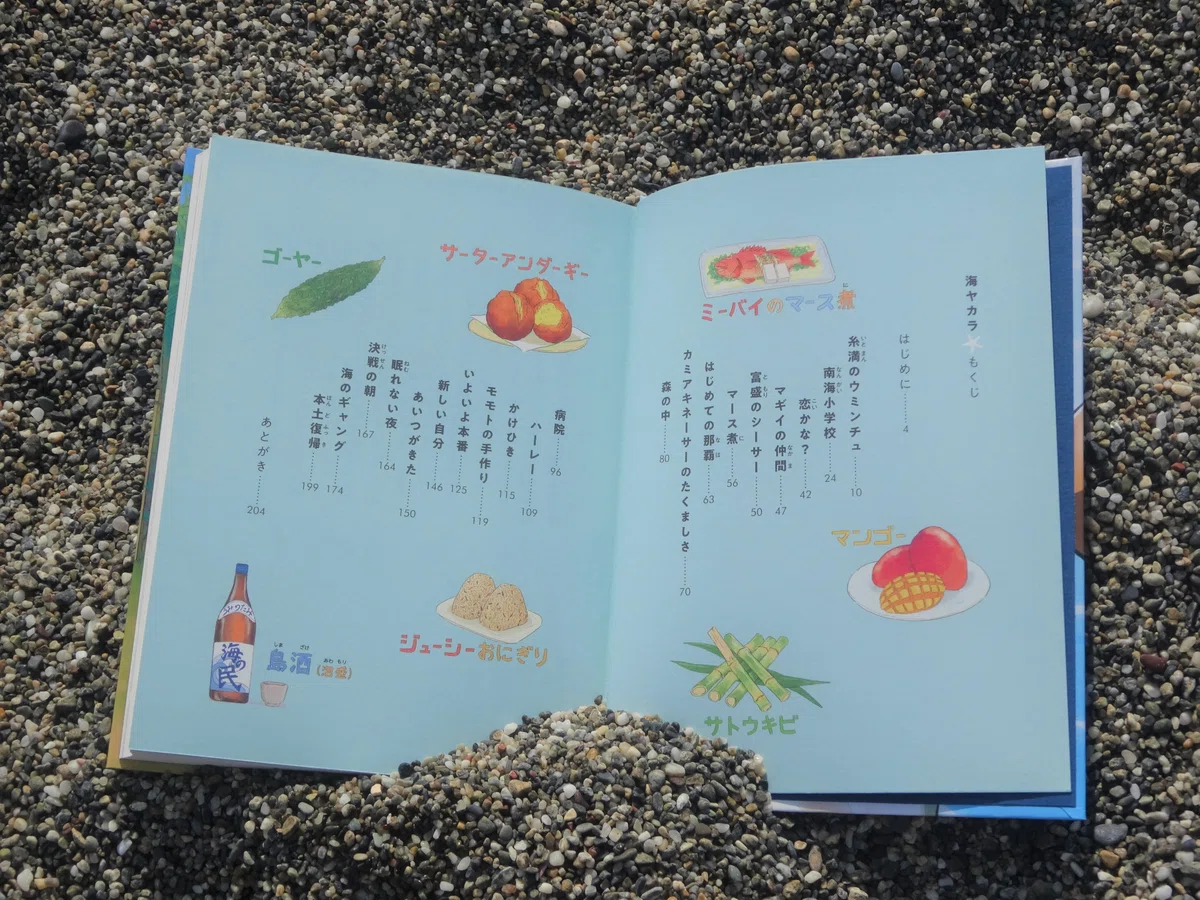 海ヤカラ★もくじ
はじめに………4
糸満のウミンチュ………10
南海小学校………24
恋かな？………42
マギイの仲間………47
富盛のシーサー………50
マース煮………56
はじめての那覇………63
カミアキネーサーのたくましさ………70
森の中………80
ミーバイのマース煮
マンゴー
サトウキビ
病院………96
ハーレー………109
かけひき………115
モモトの手作り………119
いよいよ本番………125
新しい自分………146
あいつがきた………150
眠れない夜………164
決戦の朝………167
海のギャング………174
本土復帰………199
あとがき………204
サーターアンダーギー
ゴーヤー
ジューシーおにぎり
島酒（泡盛）
海の民